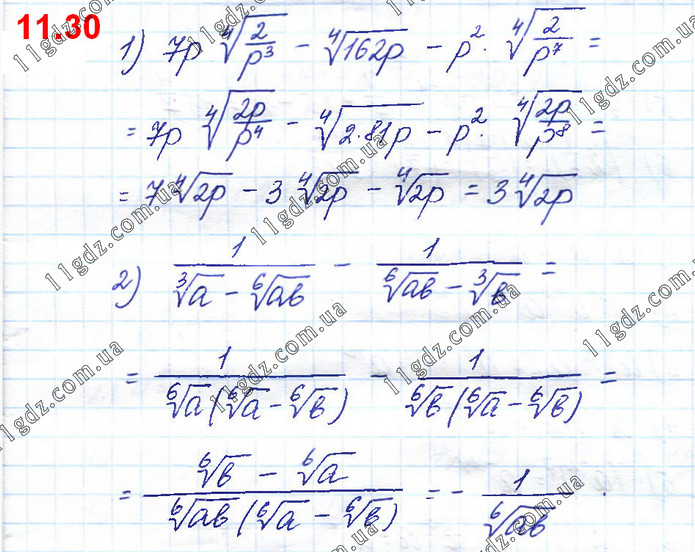 11.30
1) 7p ∜(2/p³) − ∜(162p) − p² · ∜(2/p⁷) =
= 7p ∜(2p/p⁴) − ∜(2·81p) − p² · ∜(2p/p⁸) =
= 7∜(2p) − 3∜(2p) − ∜(2p) = 3∜(2p)
2) 1/(∛a − ⁶√(ab)) − 1/(⁶√(ab) − ∛b) =
= 1/(⁶√a (⁶√a − ⁶√b)) − 1/(⁶√b (⁶√a − ⁶√b)) =
= (⁶√b − ⁶√a)/(⁶√(ab) (⁶√a − ⁶√b)) = − 1/⁶√(ab) .
11gdz.com.ua
11gdz.com.ua
11gdz.com.ua
11gdz.com.ua
11gdz.com.ua
11gdz.com.ua
11gdz.com.ua
11gdz.com.ua
11gdz.com.ua